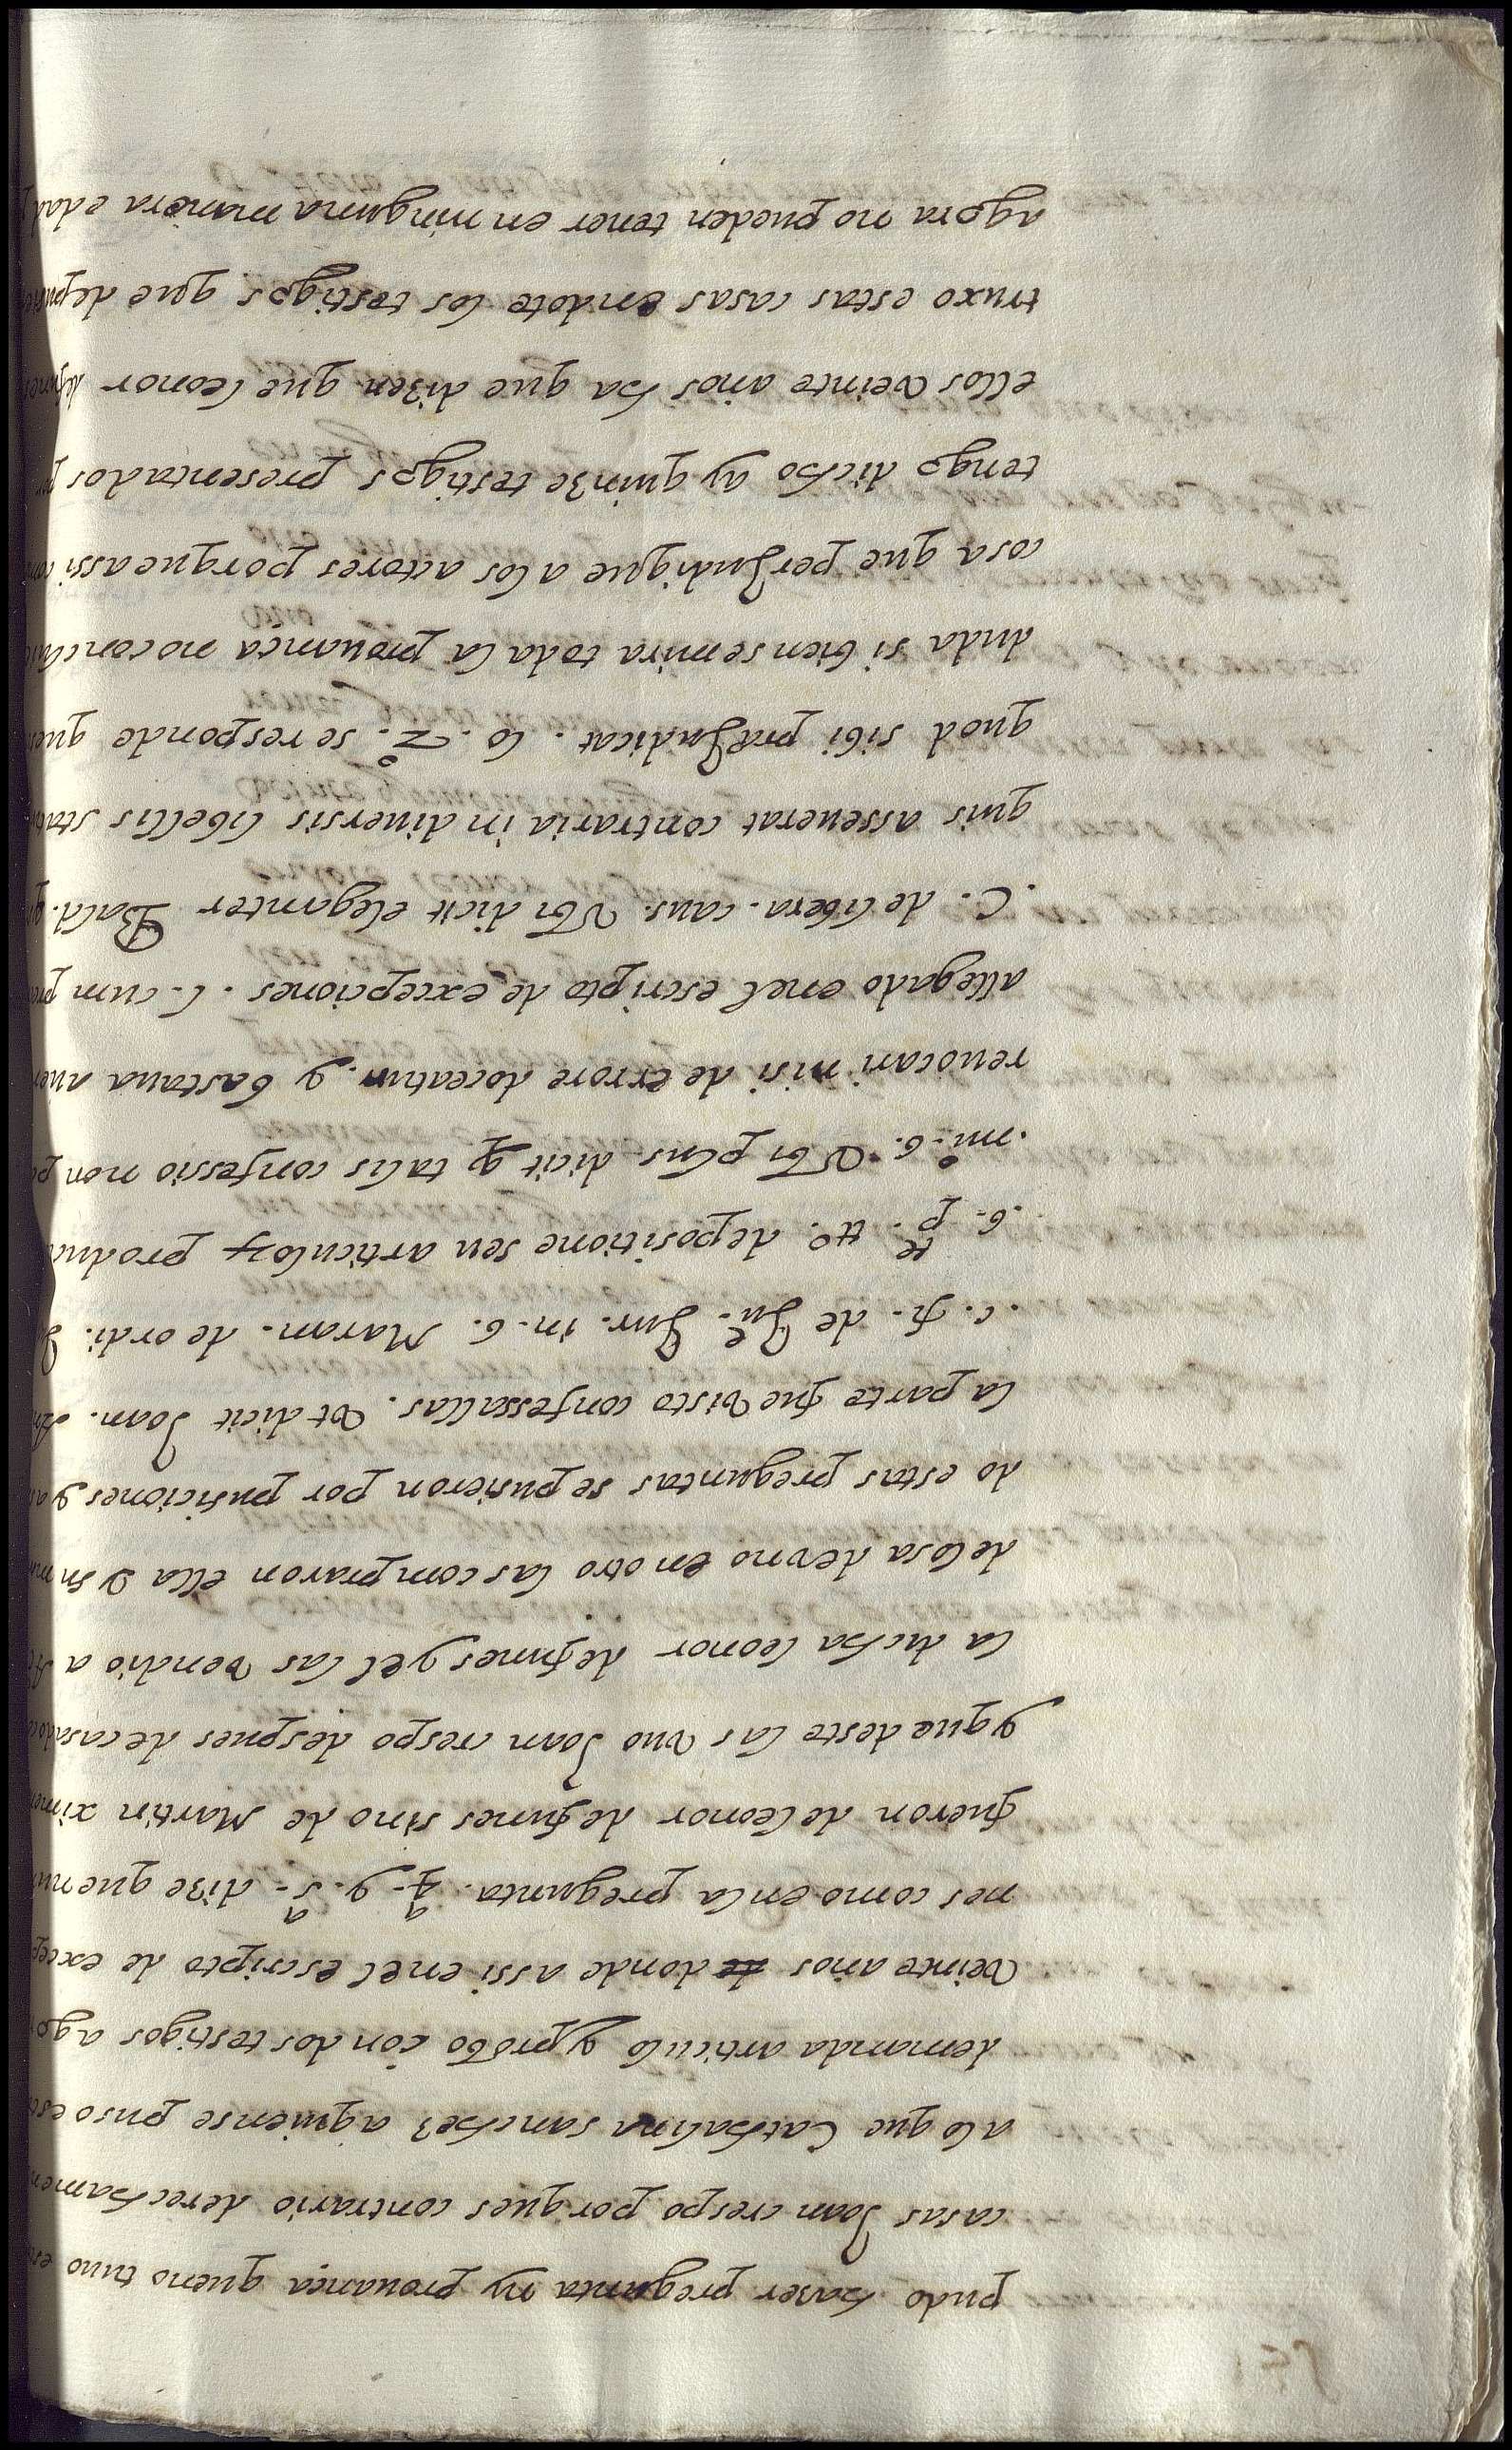 pudo hazer pregunta ny prouança queno tuuo
casas Joan crespo porques contrario derechamen
alo que Cathalina sanchez aquiense puso es
demanda articulo y probo con dos testigos ago
veinte años donde assi enel escripto de excep
nes como enla pregunta. 4ª. y. 5ª. dize quenu
fueron deleonor defunes sino de Martin xime
y que deste las vuo Joan crespo despues decasado
la dicha leonor defunes y el las vendio a
delosa devno en otro las compraron ella y su ma
do estas preguntas se pusieron por pusiciones y a
la parte fue visto confessallas. vt dicit Joan. An
.c. fi. de Ju. Jur. in. 6. Maran. de ordi. J
.6. pte. tt°. depositione seu articulor produc
.n°. 6. Vbi plus dicit q talis confessio non po
reuocari nisi de errore doceatur. y bastaua auer
allegado enel escripto de excepciones. l. cum pre
.C. de libera. caus. Vbi dicit eleganter Bald. q
quis asseuerat contraria in diuersis libellis stat
quod sibi præJudicat. lo. 2°. se responde que
duda si bien semira toda la prouança no conclui
cosa que perJudique a los actores porque assi com
tengo dicho ay quinze testigos presentados p
ellos veinte años ha que dizen que leonor defunes
truxo estas casas endote los testigos que depusie
agora no pueden tener en ninguna manera edad